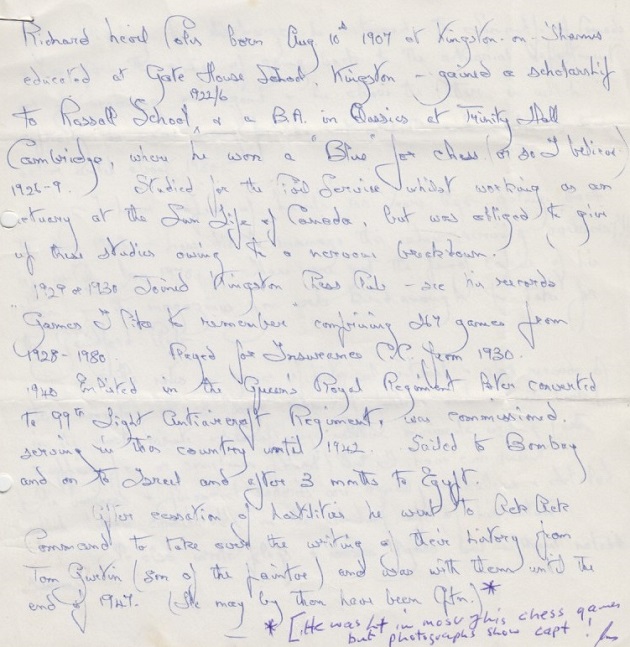 Richard Nevil Coles born Aug 10th 1907 at Kingston-on-Thames
educated at Gate House School, Kingston - gained a scholarship
1922/6
to Rossall School, & a B.A. in Classics at Trinity Hall
Cambridge, where he won a "Blue" for chess (or so I believe)
1926-9. Studied for the Civil Service whilst working as an
actuary at the Sun Life of Canada, but was obliged to give
up these studies owing to a nervous breakdown.
1929 & 1930 Joined Kingston Chess Club - see his records
"Games I like to remember" comprising 267 games from
1928-1980. Played for Insurance C.C. from 1930.
1940 Enlisted in the Queen's Royal Regiment later converted
to 99th Light Antiaircraft Regiment, was commissioned.
serving in this country until 1942. Sailed to Bombay
and on to Israel and after 3 months to Egypt.
After cessation of hostilities he went to
Command to take over the writing of their history from
Tom Girtin (son of the painter) and was with them until the
end of 1947. (He may by then have been Cptn.)*
* [He was Lt in most of his chess games
but photographs show capt!